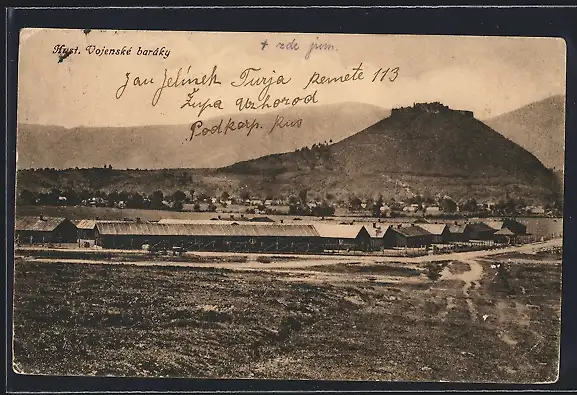 Hust. Vojenské baráky
+ zde jsm.
Jan Jelínek Turja remete 113
Župa Užhorod
Podkarp. Rus